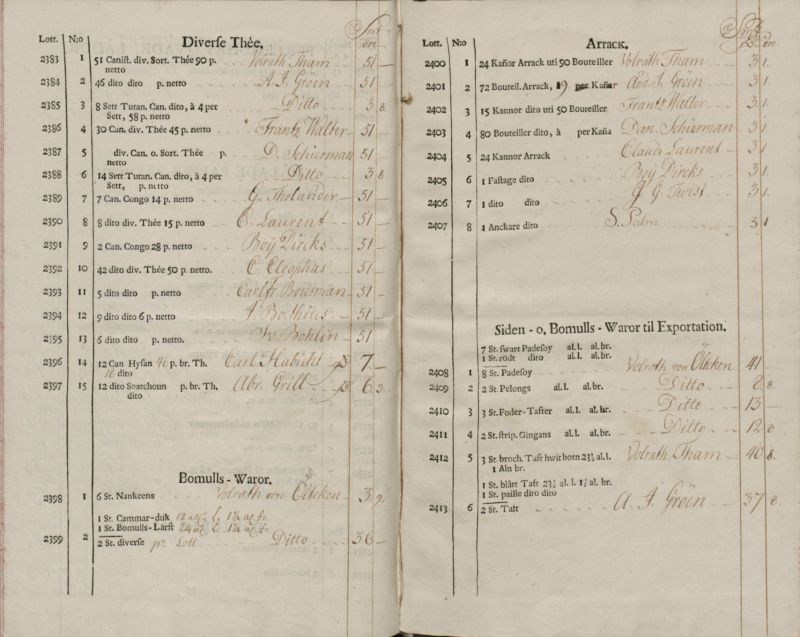 Diverse Thée.
Lott. N:o öre
2383 1 51 Canist. div. Sort. Thée 90 p. netto Volrath Tham 51 —
2384 2 46 dito diro p. netto A. J. Gröen 51 —
2385 3 8 Sett Tutan. Can. dito, à 4 per Sett, 58 p. netto Ditto 3 8.
2386 4 30 Can. div. Thée 45 p. netto Frantz Walter 51 —
2387 5 div. Can. o. Sort. Thée p. netto D. Schierman 51 —
2388 6 14 Sett Tutan. Can. diro, à 4 per Sett, p. netto Ditto 3 8
2389 7 7 Can. Congo 14 p. netto G. Tholander 51 —
2390 8 8 dito div. Thée 15 p. netto C. Laurent 51 —
2391 9 2 Can. Congo 28 p. netto Boÿ Dircks 51 —
2392 10 42 dito div. Thée 50 p. netto. C. Cleophas 51 —
2393 11 5 dito dito p. netto. Carl fr Bousman 51 —
2394 12 9 dito dito 6 p. netto J. Boethius 51 —
2395 13 6 dito dito p. netto. Bohlin 51 —
2396 14 12 Can Hysan p. br. Th. Carl Habicht 7 —
dito
2397 15 12 dito Soatchoun p. br. Th. Abr. Grill 6 3.
dito
Bomulls-Waror.
2398 1 6 St. Nankeens Volrath von Öltcken 3 9.
1 St. Cammar-duk 12 al. l. 1⅛ al. br.
1 St. Bomulls-Lärft 24 al. l. al. br.
2399 2 2 St. diverse pr Lott Ditto 36 —
Arrack.
Lott. N:o öre
2400 1 24 Kañor Arrack uti 90 Bouteiller Volrath Tham 3 1.
2401 2 72 Bouteil. Arrack, 19 per Kañor And. J. Gröen 3 1.
2402 3 15 Kannor dito uti 50 Bouteiller Frantz Walter 3 1.
2403 4 80 Bouteiller dito, à per Kaña Dan. Schierman 3 1.
2404 5 24 Kannor Arrack Claude Laurent 3 1.
2405 6 1 Fastage dito Boÿ Dircks 3 1.
2406 7 1 dito dito J. G. Twist 3 1.
2407 8 1 Anckare dito S. Palm 3 1
Siden-o. Bomulls-Waror til Exportation.
7 St. swart Padesoy al. l. al. br.
1 St. rödt dito al. l. al. br.
2408 1 8 St. Padesoy Volrath von Öltken 41 —
2409 2 2 St. Pelongs al. l. al. br. Ditto 8.
2410 3 3 St. Foder-Tafter al. l. al. br. Ditto 13 —
2411 4 2 St. strip. Gingans al. l. al. br. Ditto 12
2412 5 3 St. broch. Taft hwit botn 23½ al. l. Volrath Tham 46 8.
1 Aln br.
1 St. blått Taft 23½ al. l. 1¼ al. br.
1 St. paille dito dito
2413 6 2 St. Taft A. J. Gröen 37 8.